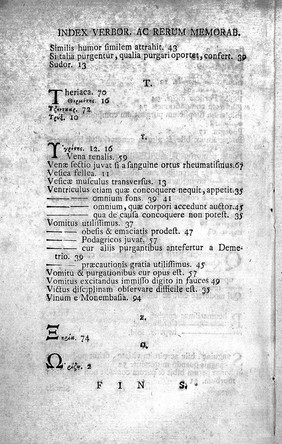 INDEX VERBOR. AC RERUM MEMORAB.
Similis humor similem attrahit. 43
Si talia purgentur, qualia purgari oportet, confert. 39
Sudor. 13
T.
Theriaca. 70
16
72
10
12. 16
Vena renalis. 59
Venæ sectio juvat si a sanguine ortus rheumatismus. 67
Vesica fellea. 11
Vesicæ musculus transversus. 13
Ventriculus etiam quæ concoquere nequit, appetit. 35
——— omnium fons. 39 41
——— omnium, quæ corpori accedunt auctor. 45
——— qua de causa concoquere non potest. 35
Vomitus utilissimus. 37
——— obesis & emaciatis prodest. 47
——— Podagricos juvat. 57
——— cur aliis purgantibus antefertur a Demetrio. 39
——— præcautionis gratia utilissimus. 45
Vomitu & purgationibus cur opus est. 57
Vomitus excitandus immisso digito in fauces 49
Victus disciplinam observare difficile est. 35
Vinum e Monembasia. 94
Ξ.
74
Ω.
2
F I N S.